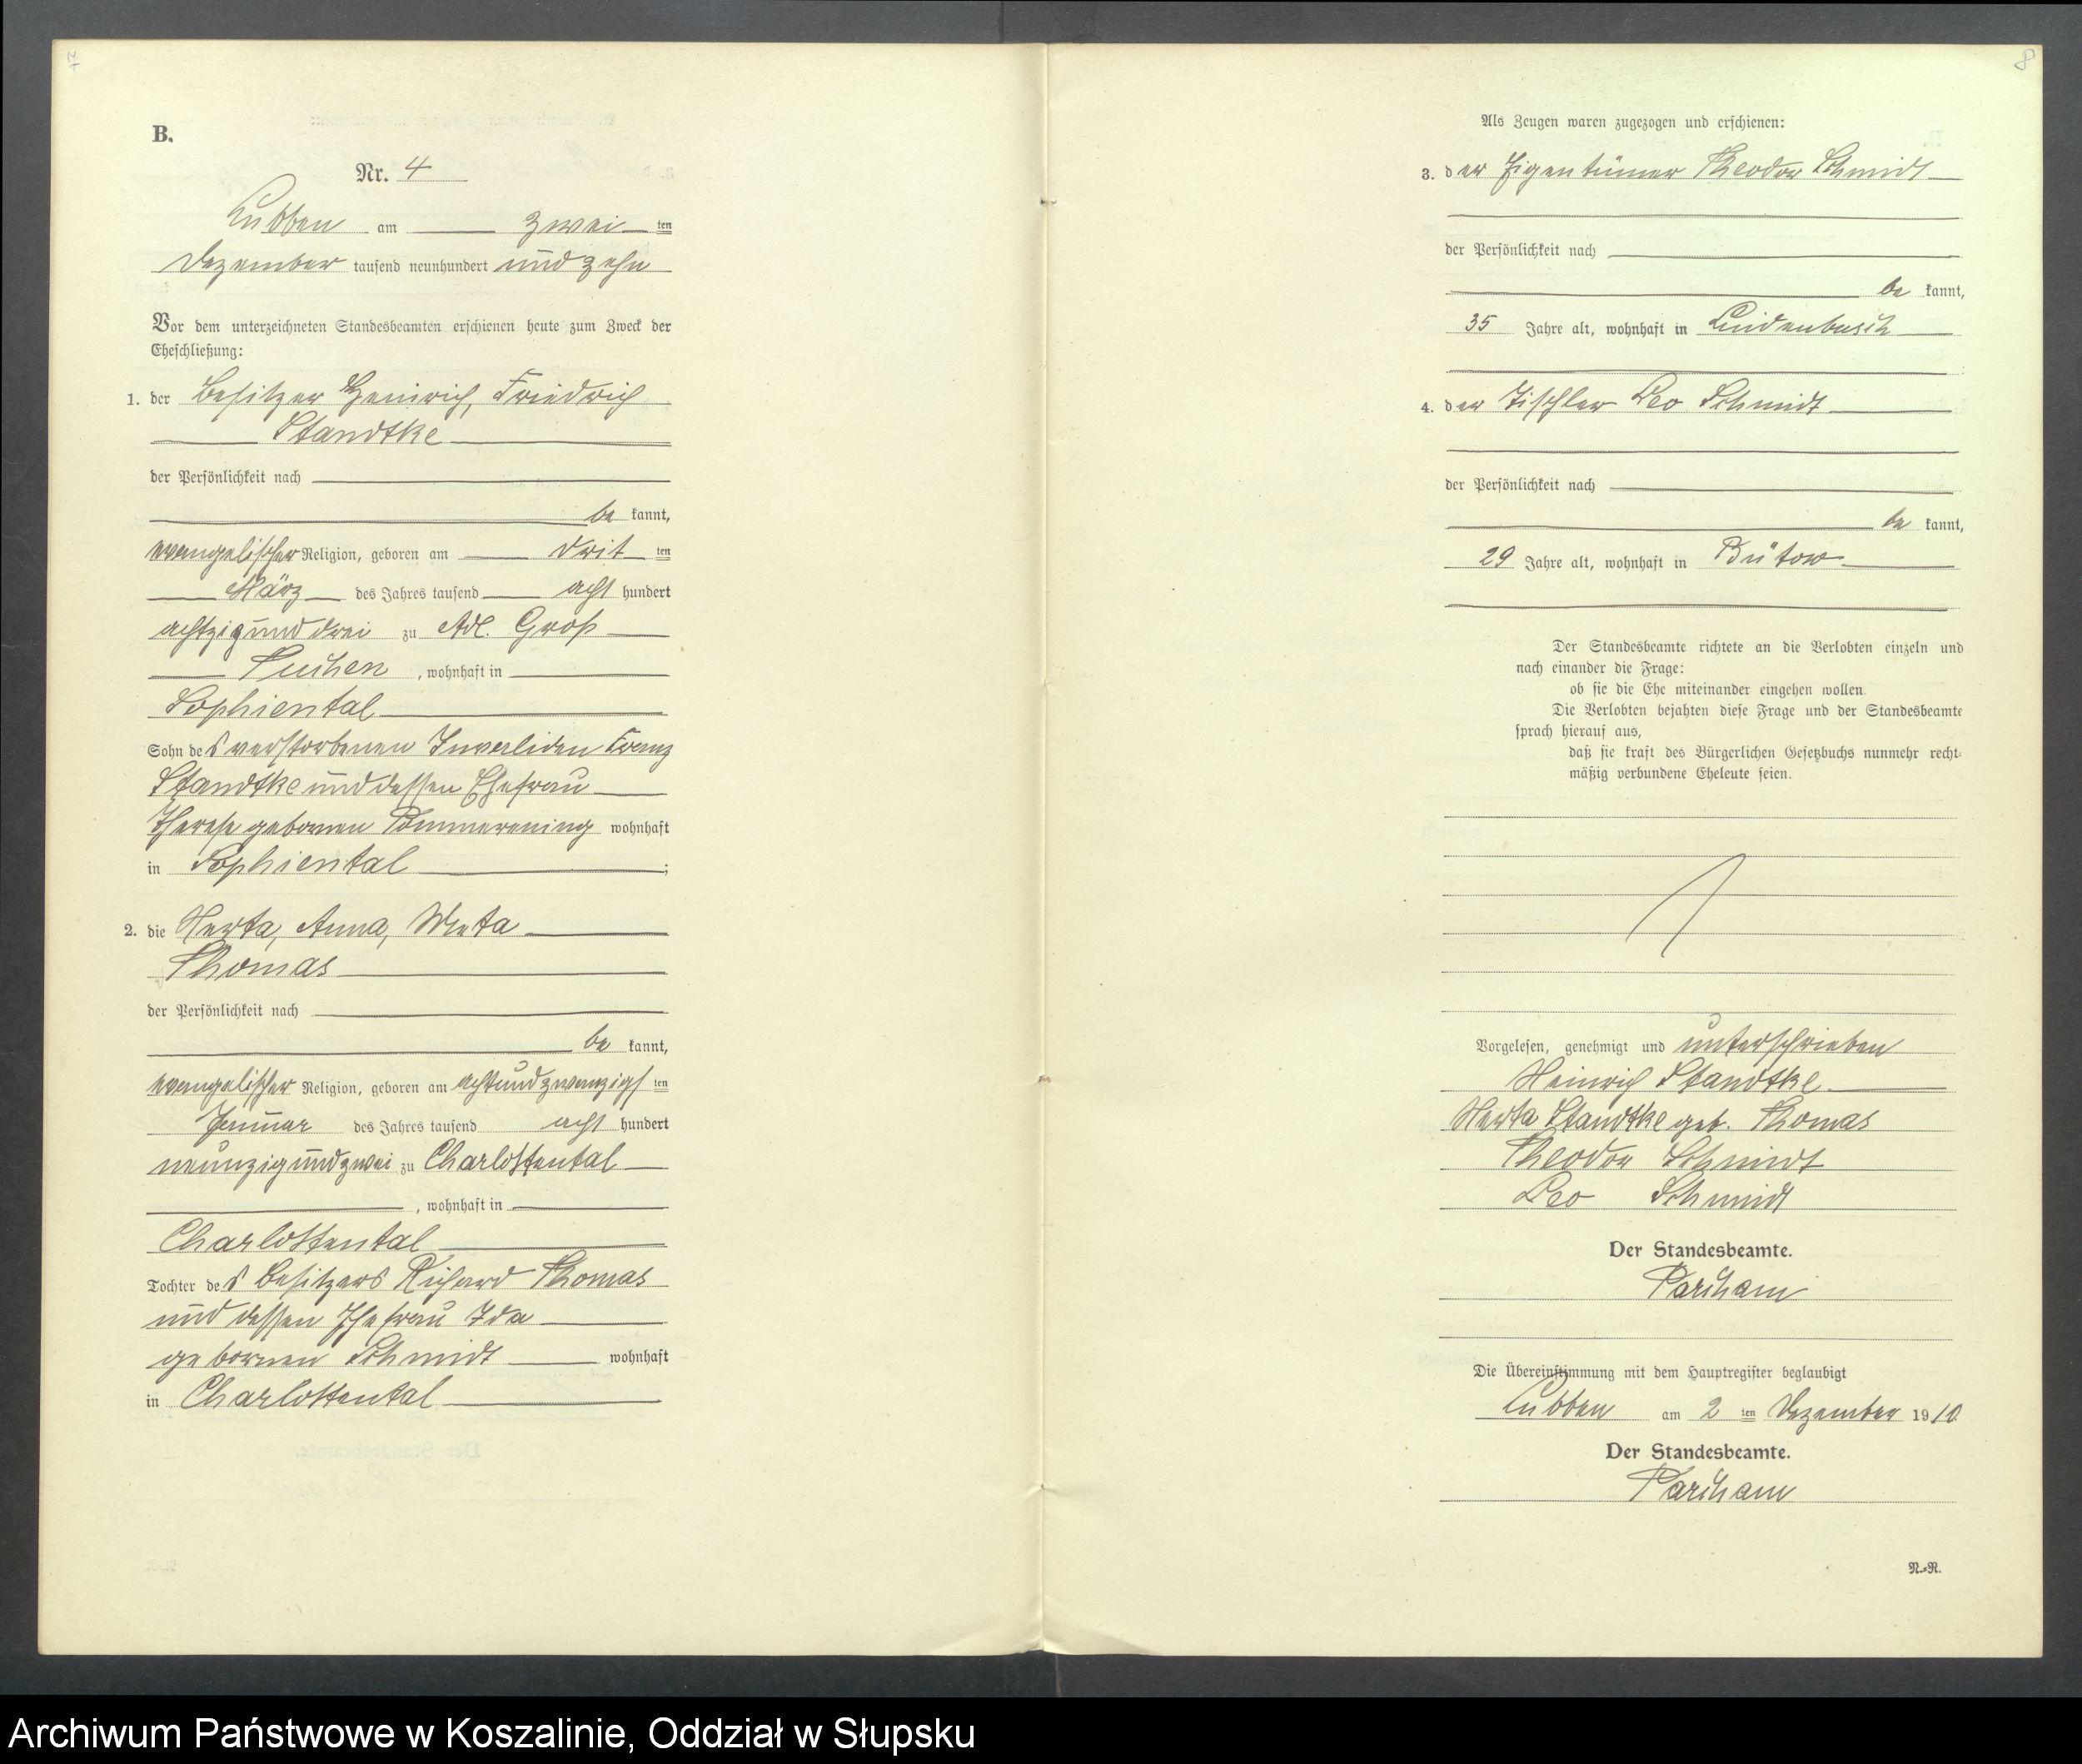 7
B.
Nr. 4
Lubben am zwei ten
Dezember tausend neunhundert und zehn
Vor dem unterzeichneten Standesbeamten erschienen heute zum Zweck der
Eheschließung:
1. der Besitzer Heinrich, Friedrich
Standtke
der Persönlichkeit nach
be kannt,
evangelischer Religion, geboren am drit ten
März des Jahres tausend acht hundert
achtzig und drei zu Adl. Groß
Tuchen, wohnhaft in
Sophiental
Sohn des verstorbenen Invaliden Franz
Standtke und dessen Ehefrau
Therese gebornen Pommerening wohnhaft
in Sophiental;
2. die Herta, Anna, Meta
Thomas
der Persönlichkeit nach
be kannt,
evangelischer Religion, geboren am achtundzwanzigs ten
Januar des Jahres tausend acht hundert
neunzig und zwei zu Charlottental
, wohnhaft in
Charlottental
Tochter des Besitzers Richard Thomas
und dessen Ehefrau Ida
gebornen Schmidt wohnhaft
in Charlottental
8
Als Zeugen waren zugezogen und erschienen:
3. der Eigentümer Theodor Schmidt
der Persönlichkeit nach
be kannt,
35 Jahre alt, wohnhaft in Lindenbusch
4. der Tischler Leo Schmidt
der Persönlichkeit nach
be kannt,
29 Jahre alt, wohnhaft in Bütow
Der Standesbeamte richtete an die Verlobten einzeln und
nach einander die Frage:
ob sie die Ehe miteinander eingehen wollen.
Die Verlobten bejahten diese Frage und der Standesbeamte
sprach hierauf aus,
daß sie kraft des Bürgerlichen Gesetzbuchs nunmehr recht-
mäßig verbundene Eheleute seien.
Vorgelesen, genehmigt und unterschrieben
Heinrich Standtke
Herta Standtke geb. Thomas
Theodor Schmidt
Leo Schmidt
Der Standesbeamte.
Parcham
Die Übereinstimmung mit dem Hauptregister beglaubigt
Lubben am 2 ten Dezember 1910
Der Standesbeamte.
Parcham
N.-R.
Archiwum Państwowe w Koszalinie, Oddział w Słupsku